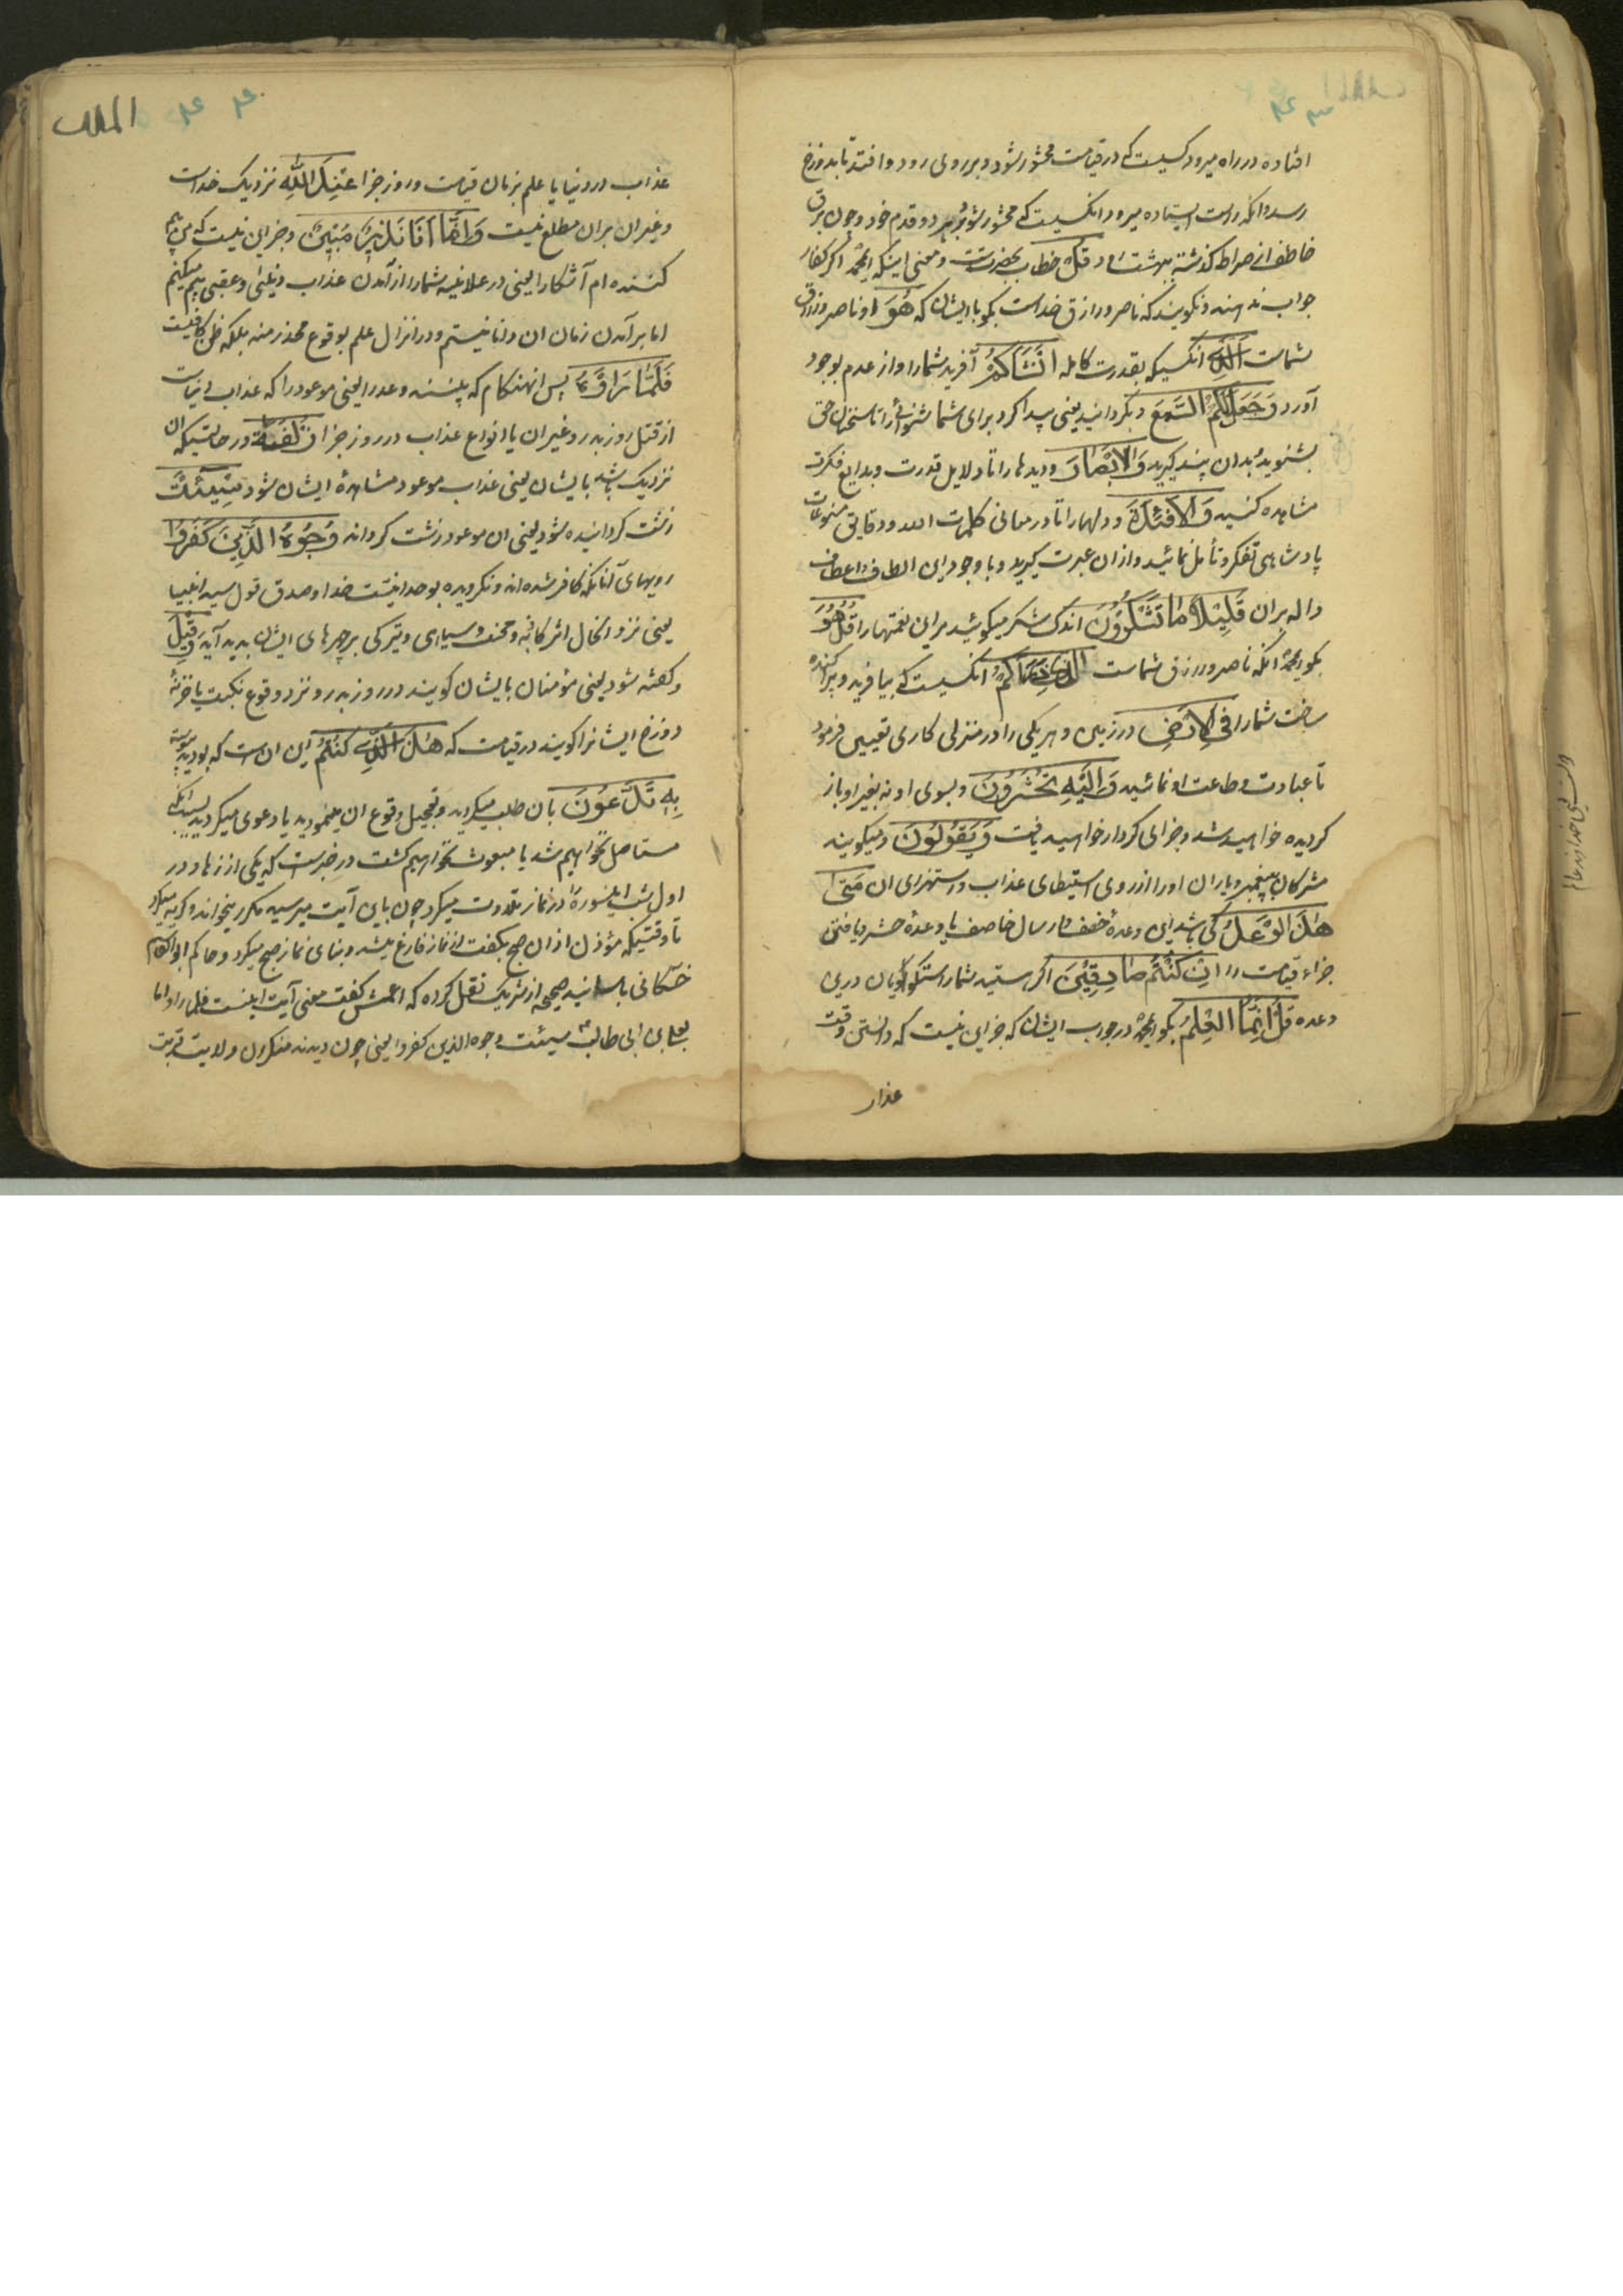 افتاده در راه میرود کسیست که در قیامت محشور شود و بر روی رود و افتد تا بدوزخ
رسد و انکه راست ایستاده میرود انکسیست که محشور شود بر هر دو قدم خود و چون برق
خاطف از صراط کذشته ببهشت در قل خطاب بحضرتست و معنی اینکه ایمحمد اکر کفار
جواب ندهند و نکویند که ناصر و رازق خداست بکو با ایشان که هُوَ او ناصر و رازق
شماست الَّذِی انکسیکه بقدرت کامله اَنْشَاَکُمْ آفرید شما را و از عدم بوجود
آورد وَجَعَلَ لَکُمُ السَّمْعَ و بکردانید یعنی پیدا کرد برای شما شنوائی را تا سخنان حق
بشنوید و بدان پند کیرید وَالْاَبْصَارَ و دیدها را تا دلایل قدرت و بدایع فکرت
مشاهده کنید وَالْاَفْئِدَةَ و دلها را تا در معانی کلمات الله و دقایق مصنوعات
پادشاهی تفکر و تأمل نمائید و از ان عبرت کیرید و با وجود این الطاف و اعطاف
داله بران قَلِیْلاً مَا تَشْکُرُوْنَ اندک شکر میکوئید مر این نعمتها را قُلْ هُوَ
بکو ایمحمد انکه ناصر و رازق شماست الَّذِی ذَرَاَکُمْ انکسیست که بیافرید و پراکنده
ساخت شما را فِی الْاَرْضِ در زمین و هر یکی را در منزلی کاری تعیین فرمود
تا عبادت و طاعت او نمائید وَاِلَیْهِ تُحْشَرُوْنَ و بسوی او نه بغیر او باز
کردیده خواهید شد و جزای کردار خواهید یافت وَیَقُوْلُوْنَ و میکویند
مشرکان پیغمبر و یاران او را از روی استبطای عذاب و استهزای ان مَتٰی
هٰذَا الْوَعْدُ کی باشد این وعدهٔ خسف و ارسال حاصب یا وعدهٔ حشر و یافتن
جزاء قیامت را اِنْ کُنْتُمْ صَادِقِیْنَ اکر هستید شما راستکویان درین
وعده قُلْ اِنَّمَا الْعِلْمُ بکو ایمحمد در جواب ایشان که جز این نیست که دانستن وقت
عذاب
الملک
عذاب در دنیا یا علم بزمان قیامت و روز جزا عِنْدَ اللّٰهِ نزدیک خداست
و غیر ان بران مطلع نیست وَاِنَّمَا اَنَا نَذِیْرٌ مُبِیْنٌ و جز این نیست که من بیم
کننده ام آشکارا یعنی در علانیه شما را از آمدن عذاب دنیئی و عقبی بیم میکنم
اما بر آمدن زمان ان دانا نیستم و در انزال علم بوقوع محذر منه بلکه ظن کافیست
فَلَمَّا رَاَوْهُ پس انهنکام که ببینند وعد را یعنی موعود را که عذاب دنیاست
از قتل روز بدر و غیر ان یا انواع عذاب در روز جزا زُلْفَةً در حالتیکه ان
نزدیک باشد بایشان یعنی عذاب موعود مشاهدهٔ ایشان شود سِیْئَتْ
زشت کردانیده شود یعنی ان موعود زشت کرداند وُجُوْهُ الَّذِیْنَ کَفَرُوْا
رویهای آنانکه کافر شده اند و نکرویده بوحدانیت خدا و صدق قول سید انبیا
یعنی نزد انحال اثر کآبه و محنت و سیاهی و تیرکی بر چهرهای ایشان پدید آید وَقِیْلَ
و کفته شود یعنی مؤمنان بایشان کویند در روز بدر و نزد وقوع نکبت یا خزنهٔ
دوزخ ایشانرا کویند در قیامت که هٰذَا الَّذِی کُنْتُمْ این ان است که بودید پیوسته
بِهٖ تَدَّعُوْنَ بان طلب میکردید و تعجیل وقوع ان مینمودید یا دعوی میکردید بسبب انکه
مستاصل نخواهیم شد یا مبعوث نخواهیم کشت در خبرست که یکی از زهاد در
اول شب این سوره را در نماز تلاوت میکرد چون باین آیت میرسید مکرر میخواند و کریه میکرد
تا وقتیکه مؤذن اذان صبح بکفت از نماز فارغ میشد و بنای نماز صبح میکرد و حاکم ابوالقاسم
حسکانی باسانید صحیحه از شریک نقل کرده که اعمش کفت معنی آیت اینست فلما راوا ما
لعلی بن ابی طالب سیئت وجوه الذین کفروا یعنی چون دیدند منکران ولایت قربت